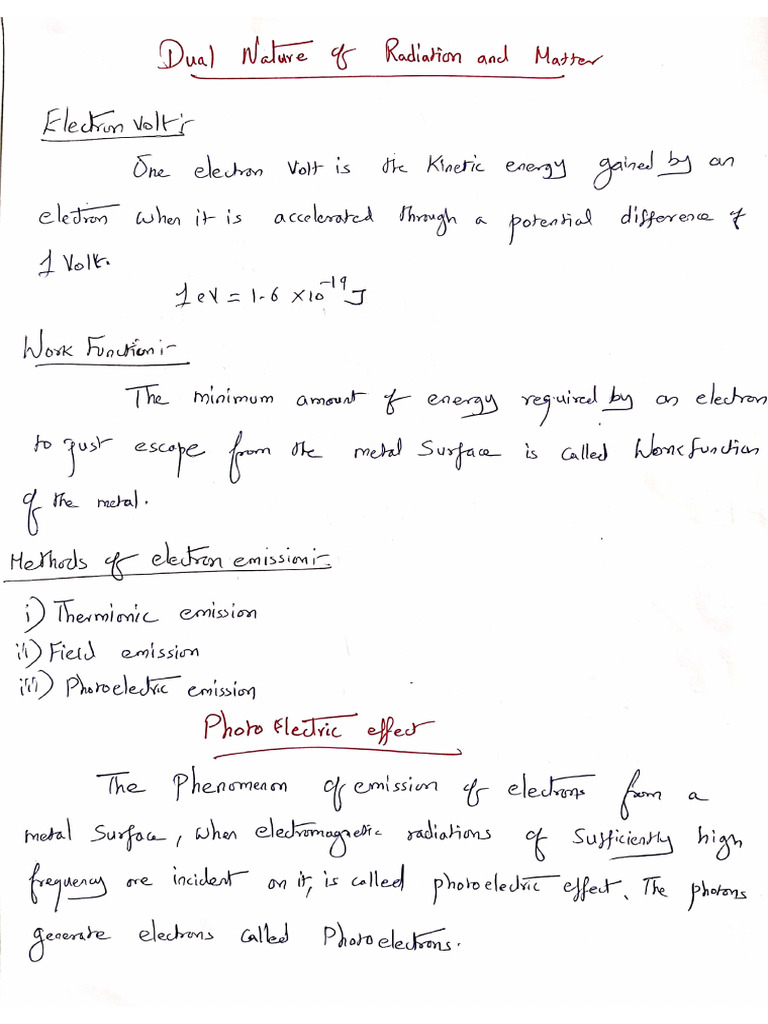 Dual Nature of Radiation and Matter
Electron volt:-
One electron Volt is the Kinetic energy gained by an
eletron when it is accelerated through a potential difference of
1 Volt.
1 eV = 1.6 × 10⁻¹⁹ J
Work Function:-
The minimum amount of energy required by an electron
to just escape from the metal Surface is called Work function
of the metal.
Methods of electron emission:-
i) Thermionic emission
ii) Field emission
iii) Photoelectric emission
Photo Electric effect
The Phenomenon of emission of electrons from a
metal Surface, when electromagnetic radiations of sufficiently high
frequency are incident on it, is called photoelectric effect. The photons
generate electrons called Photoelectrons.